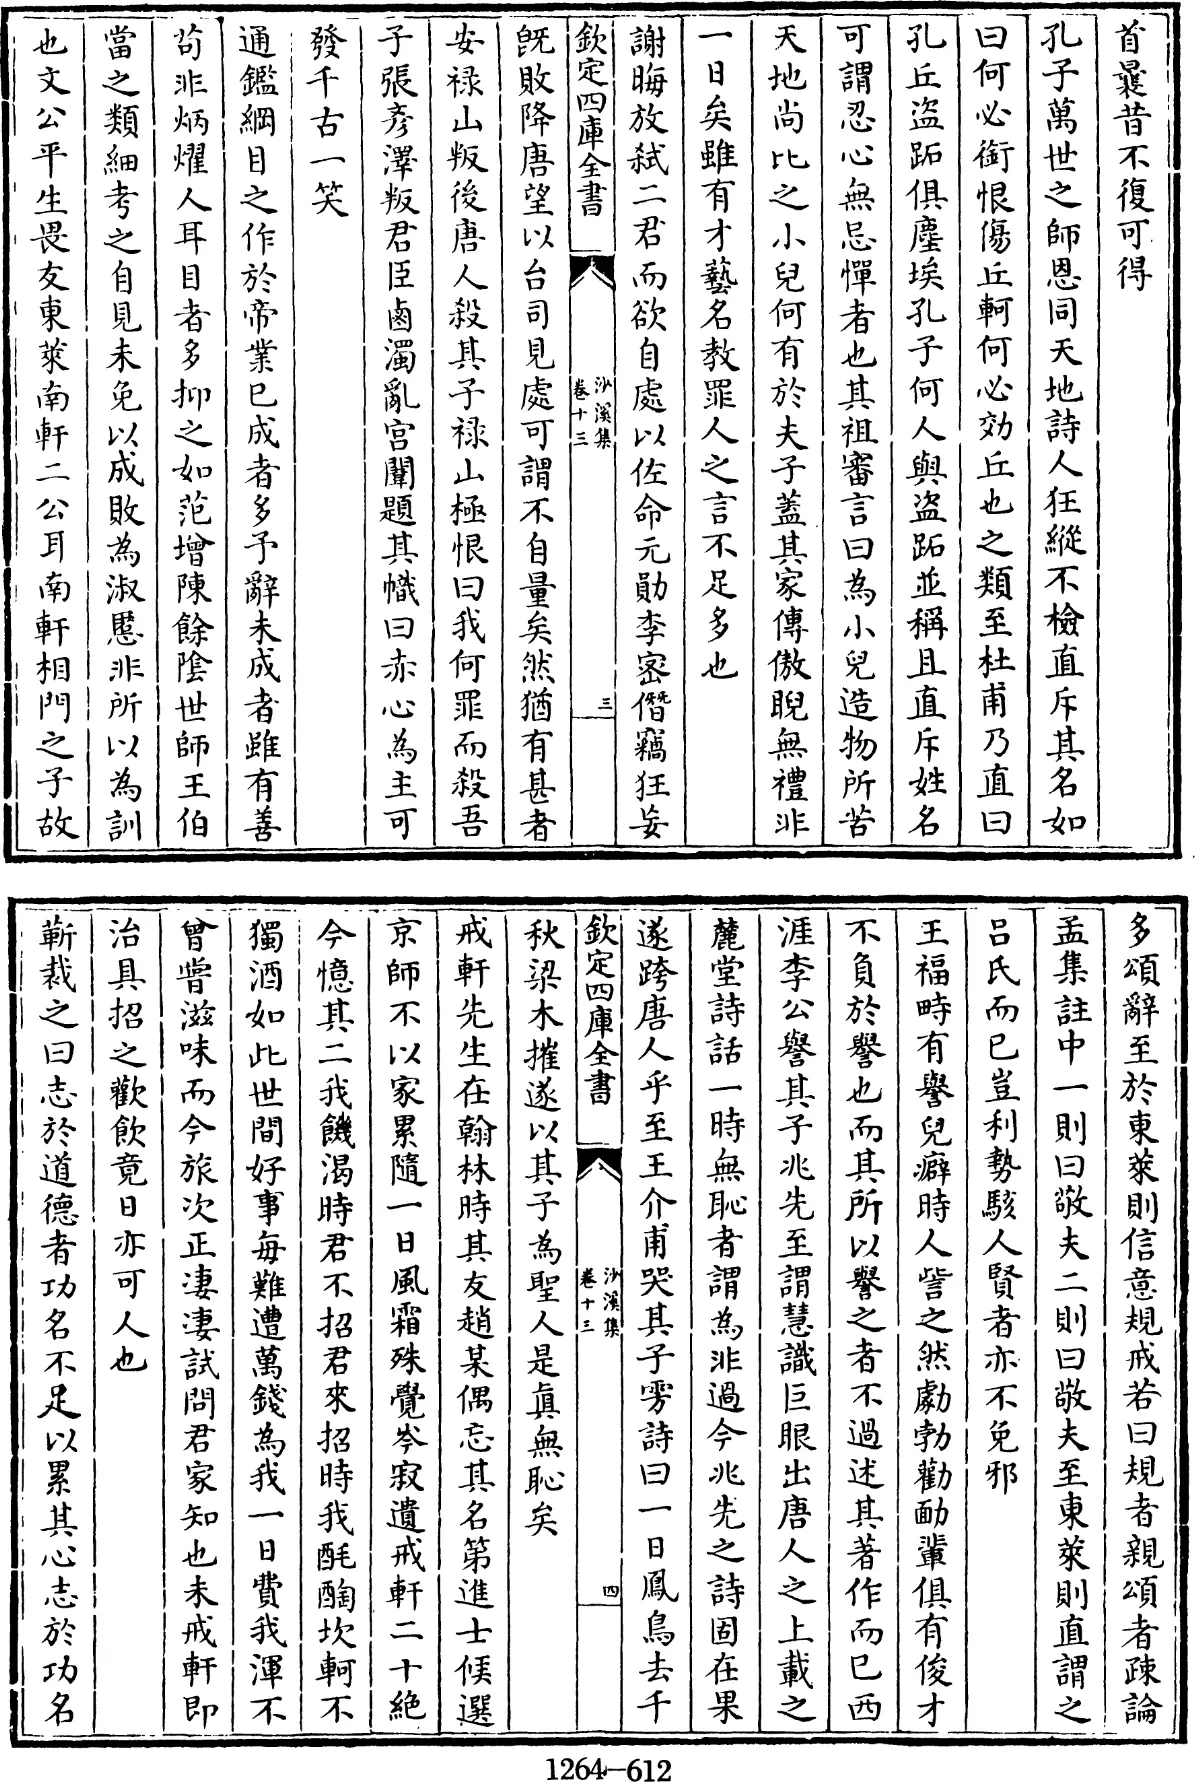 首曩昔不復可得
孔子萬世之師恩同天地詩人狂縱不檢直斥其名如
曰何必銜恨傷丘軻何必効丘也之類至杜甫乃直曰
孔丘盗跖俱塵埃孔子何人與盗跖並稱且直斥姓名
可謂忍心無忌憚者也其祖審言曰為小兒造物所苦
天地尚比之小兒何有於夫子蓋其家傳傲睨無禮非
一日矣雖有才藝名教罪人之言不足多也
謝晦放弑二君而欲自處以佐命元勛李密僭竊狂妄
欽定四庫全書
沙溪集
卷十三
三
既敗降唐望以台司見處可謂不自量矣然猶有甚者
安禄山叛後唐人殺其子禄山極恨曰我何罪而殺吾
子張彦澤叛君臣鹵濁亂宫闈題其幟曰赤心為主可
發千古一笑
通鑑綱目之作於帝業已成者多予辭未成者雖有善
苟非炳燿人耳目者多抑之如范增陳餘隂世師王伯
當之類細考之自見未免以成敗為淑慝非所以為訓
也文公平生畏友東萊南軒二公耳南軒相門之子故
多頌辭至於東萊則信意規戒若曰規者親頌者疎論
孟集註中一則曰敬夫二則曰敬夫至東萊則直謂之
吕氏而已豈利勢駭人賢者亦不免邪
王福畤有譽兒癖時人訾之然勮勃勸勔輩俱有俊才
不負於譽也而其所以譽之者不過述其著作而已西
涯李公譽其子兆先至謂慧識巨眼出唐人之上載之
麓堂詩話一時無恥者謂為非過今兆先之詩固在果
遂跨唐人乎至王介甫哭其子雱詩曰一日鳳鳥去千
欽定四庫全書
沙溪集
卷十三
四
秋梁木摧遂以其子為聖人是真無恥矣
戒軒先生在翰林時其友趙某偶忘其名第進士候選
京師不以家累隨一日風霜殊覺岑寂遺戒軒二十絶
今憶其二我饑渴時君不招君來招時我酕醄坎軻不
獨酒如此世間好事每難遭萬錢為我一日費我渾不
曾嘗滋味而今旅次正凄凄試問君家知也未戒軒即
治具招之歡飲竟日亦可人也
蘄裁之曰志於道德者功名不足以累其心志於功名
1264—612